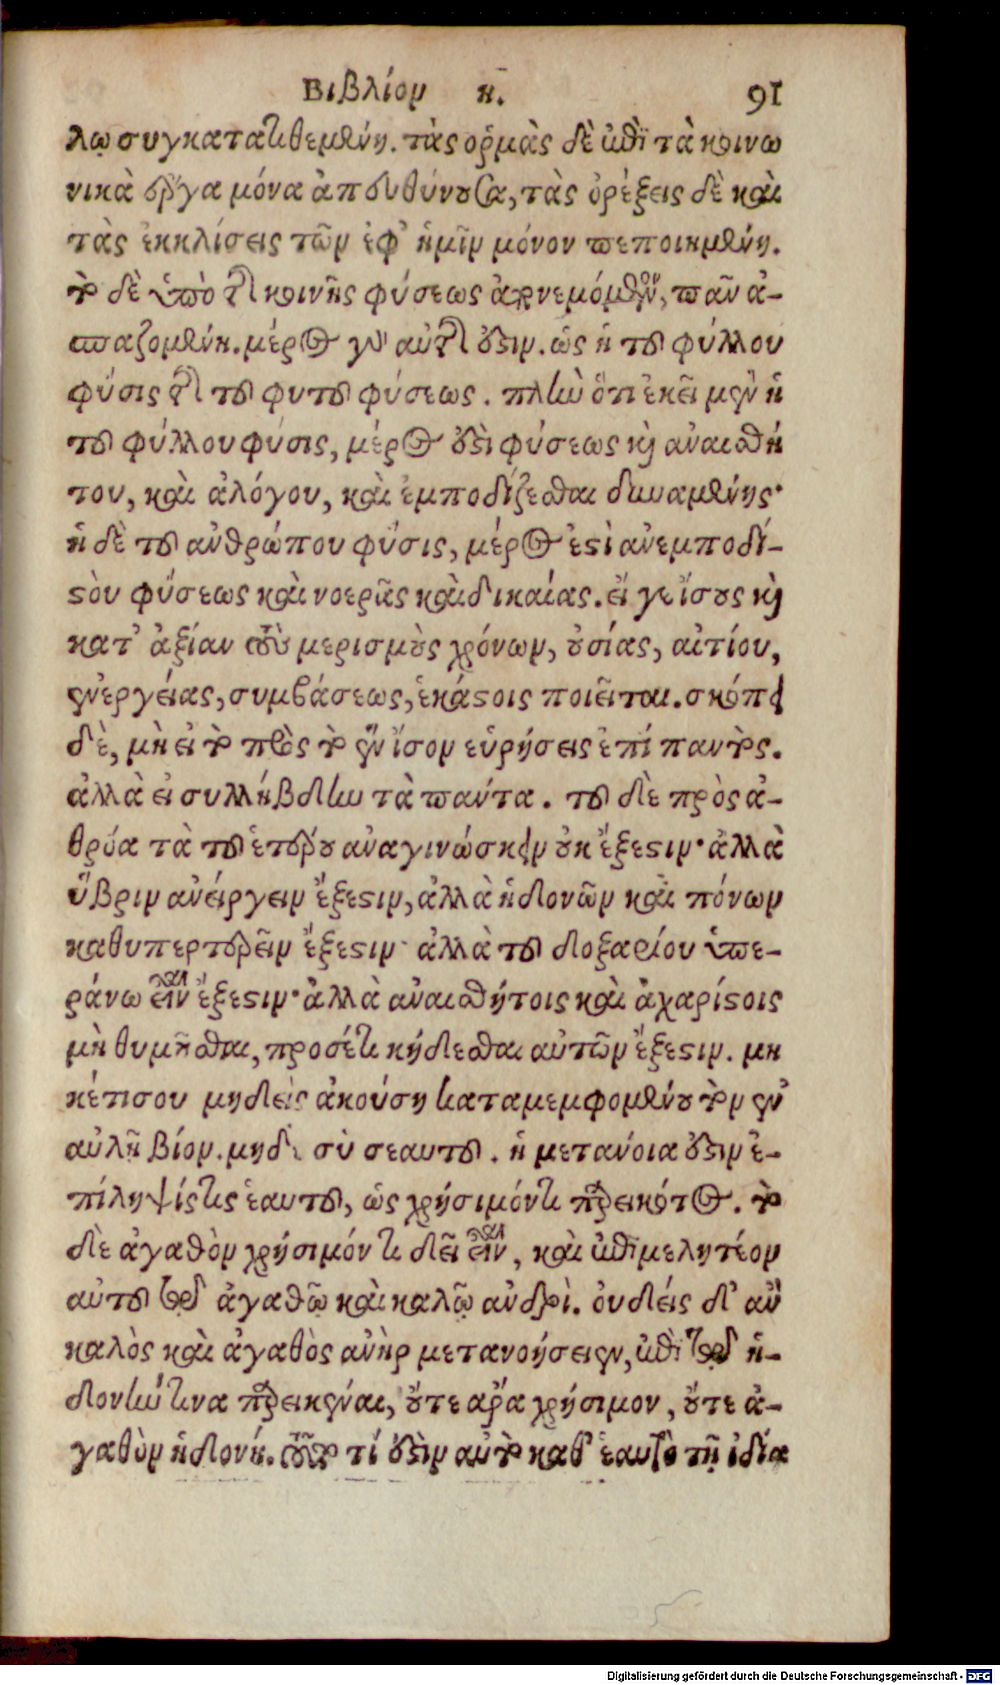 Βιβλίον η. 91
λῳ συγκατατιθεμένη. τὰς ὁρμὰς δὲ ἐπὶ τὰ κοινω
νικὰ ἔργα μόνα ἀπευθύνουσα, τὰς ὀρέξεις δὲ καὶ
τὰς ἐκκλίσεις τῶν ἐφ' ἡμῖν μόνον πεποιημένη.
τὸ δὲ ὑπὸ τῆς κοινῆς φύσεως ἀπονεμόμενον, πᾶν ἀ-
σπαζομένη. μέρος γὰρ αὐτῆς ἐστιν. ὡς ἡ τοῦ φύλλου
φύσις τῆς τοῦ φυτοῦ φύσεως. πλὴν ὅτι ἐκεῖ μὲν ἡ
τοῦ φύλλου φύσις, μέρος ἐστὶ φύσεως καὶ ἀναισθή
του, καὶ ἀλόγου, καὶ ἐμποδίζεσθαι δυναμένης·
ἡ δὲ τοῦ ἀνθρώπου φύσις, μέρος ἐστὶ ἀνεμποδί-
στου φύσεως καὶ νοερᾶς καὶ δικαίας. εἴ γε ἴσους καὶ
κατ' ἀξίαν τοὺς μερισμοὺς χρόνων, οὐσίας, αἰτίου,
ἐνεργείας, συμβάσεως, ἑκάστοις ποιεῖται. σκόπει
δὲ, μὴ εἰ τὸ πρὸς τὸ ἓν ἴσον εὑρήσεις ἐπί παντός.
ἀλλὰ εἰ συλλήβδην τὰ πάντα. τοῦ δὲ πρὸς ἀ-
θρόα τὰ τοῦ ἑτέρου ἀναγινώσκειν οὐκ ἔξεστιν· ἀλλὰ
ὕβριν ἀνείργειν ἔξεστιν, ἀλλὰ ἡδονῶν καὶ πόνων
καθυπερτερεῖν ἔξεστιν· ἀλλὰ τοῦ δοξαρίου ὑπε-
ράνω εἶναι ἔξεστιν· ἀλλὰ ἀναισθήτοις καὶ ἀχαρίστοις
μὴ θυμῆσθαι, προσέτι κήδεσθαι αὐτῶν ἔξεστιν. μη
κέτι σου μηδεὶς ἀκούσῃ καταμεμφομένου τὸν ἐν
αὐλῇ βίον. μηδὲ σὺ σεαυτοῦ. ἡ μετάνοια ἔστιν ἐ-
πίληψίς τις ἑαυτοῦ, ὡς χρήσιμόν τι παρεικότος. τὸ
δὲ ἀγαθὸν χρήσιμόν τι δεῖ εἶναι, καὶ ἐπιμελητέον
αὐτοῦ τῷ ἀγαθῷ καὶ καλῷ ἀνδρὶ. οὐδεὶς δ' ἂν
καλὸς καὶ ἀγαθὸς ἀνὴρ μετανοήσειεν, ἐπὶ τῷ ἡ-
δονήν τινα παρεικέναι, οὔτε ἄρα χρήσιμον, οὔτε ἀ-
γαθὸν ἡδονή. τοῦτο τί ἔστιν αὐτὸ καθ' ἑαυτὸ τῇ ἰδίᾳ
Digitalisierung gefördert durch die Deutsche Forschungsgemeinschaft - DFG